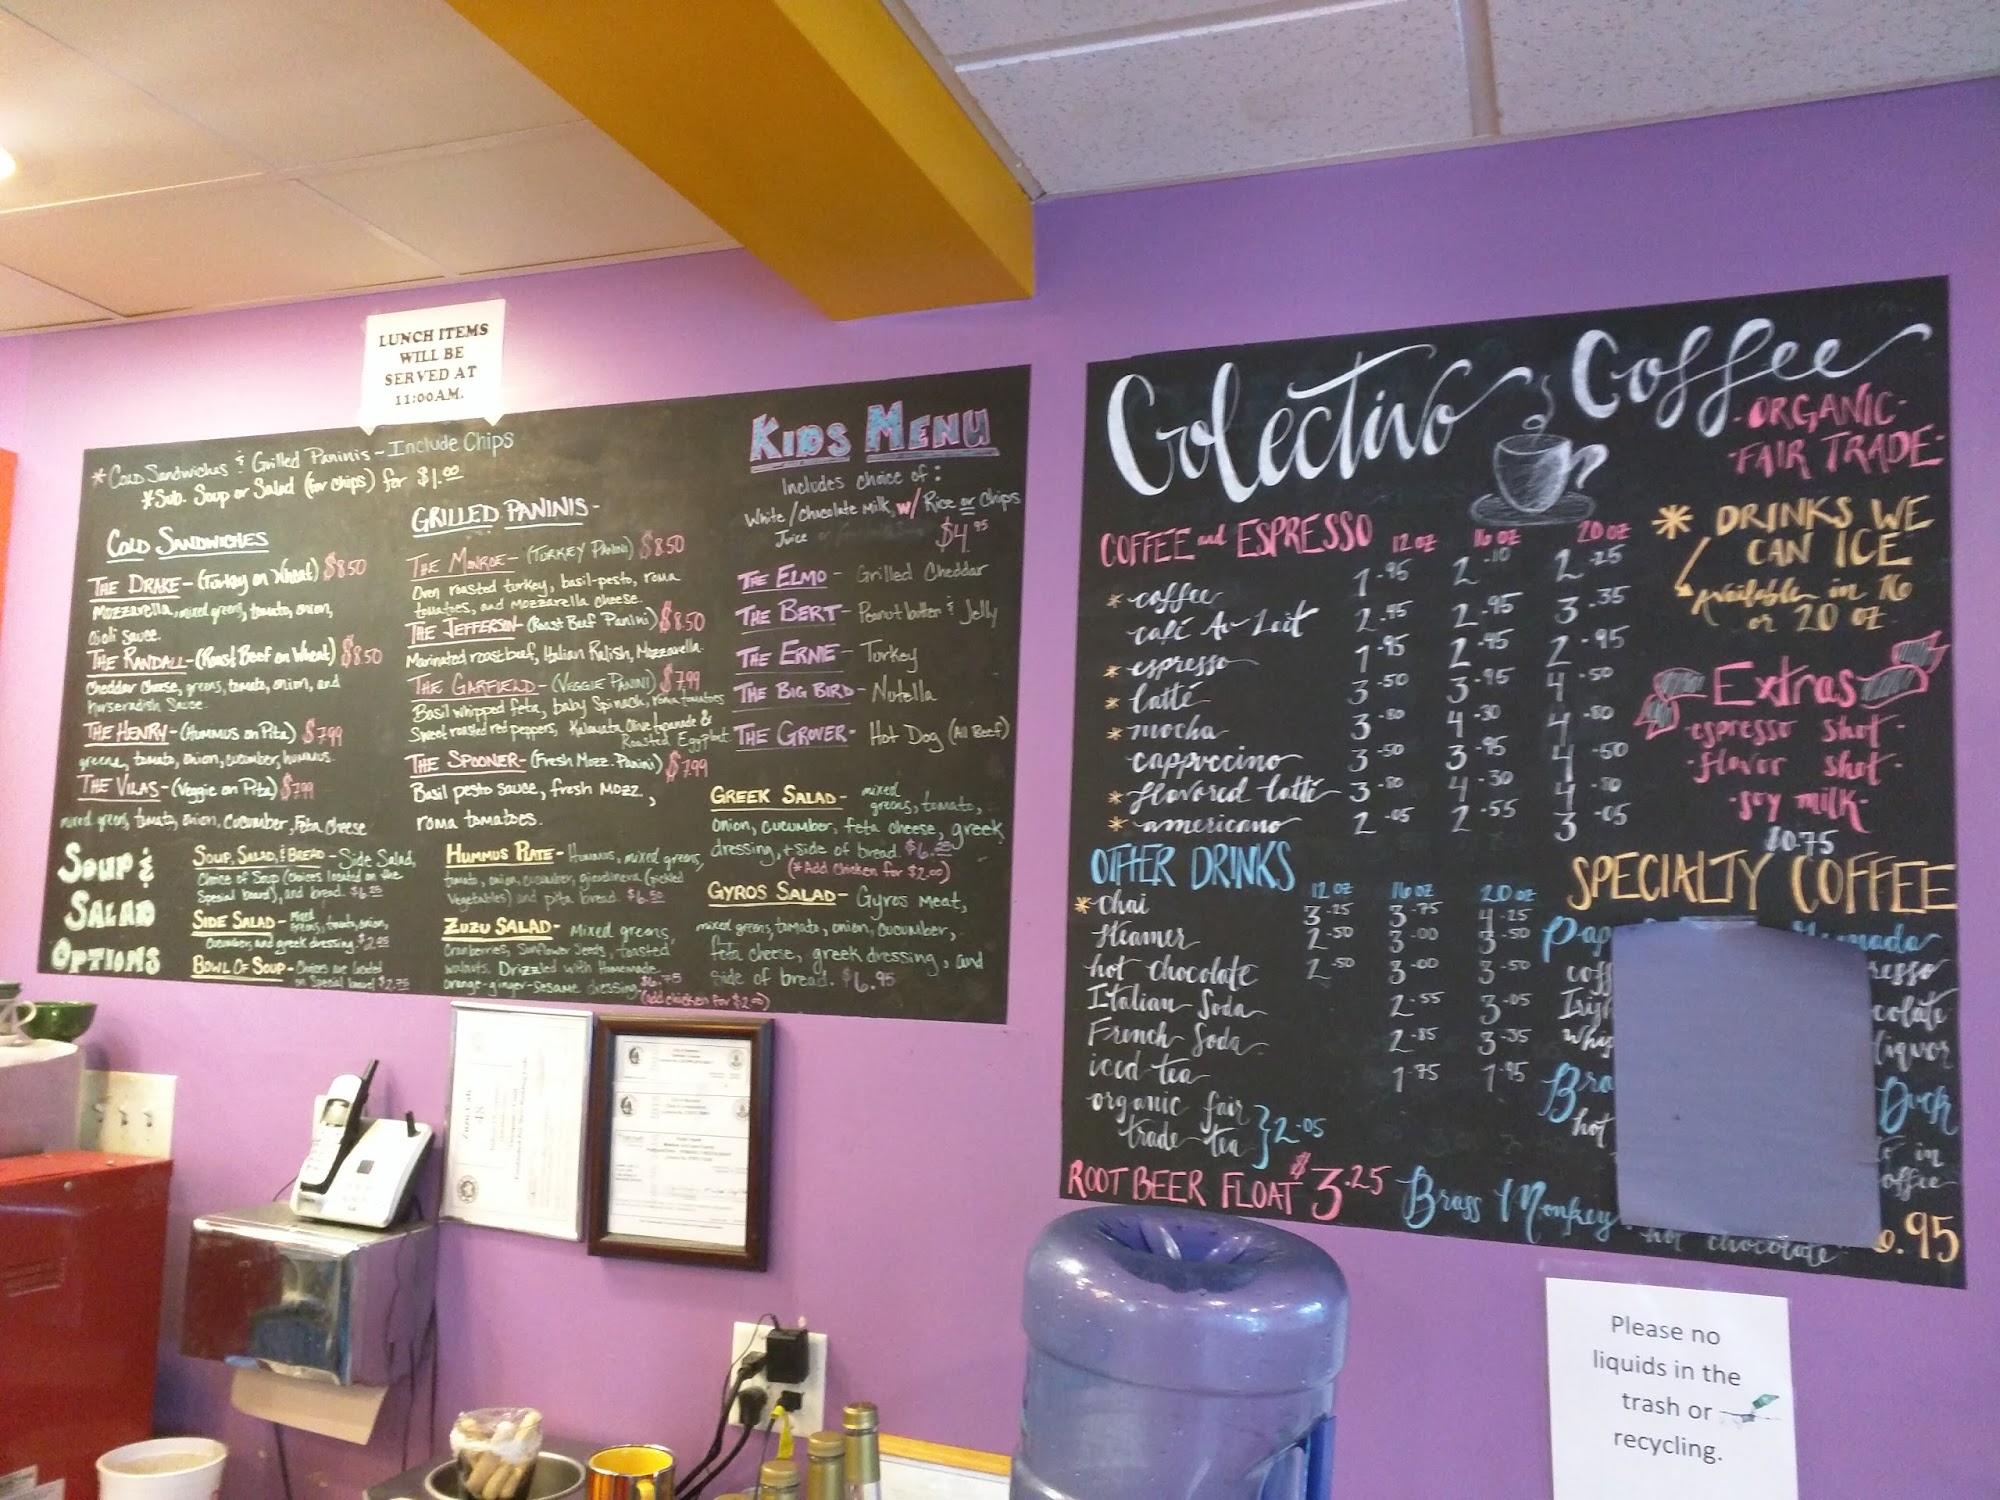 LUNCH ITEMS
WILL BE
SERVED AT
11:00AM.
* Cold Sandwiches & Grilled Paninis - Include Chips
*Sub. Soup or Salad (for chips) for $1.00
COLD SANDWICHES
THE DRAKE - (Turkey on Wheat) $8.50
Mozzarella, mixed greens, tomato, onion,
aioli sauce.
THE RANDALL - (Roast Beef on Wheat) $8.50
Cheddar cheese, greens, tomato, onion, and
horseradish sauce.
THE HENRY - (Hummus on Pita) $7.99
greens, tomato, onion, cucumber, hummus.
THE VILAS - (Veggie on Pita) $7.99
mixed greens, tomato, onion, cucumber, Feta cheese
GRILLED PANINIS -
THE MONROE - (TURKEY PANINI) $8.50
Oven roasted turkey, basil-pesto, roma
tomatoes, and mozzarella cheese.
THE JEFFERSON - (Roast Beef Panini) $8.50
Marinated roast beef, Italian Relish, Mozzarella.
THE GARFIELD - (VEGGIE PANINI) $7.99
Basil whipped feta, baby spinach, roma tomatoes
Sweet roasted red peppers, Kalamata Olive tapanade &
Roasted Eggplant
THE SPOONER - (Fresh Mozz. Panini) $7.99
Basil pesto sauce, fresh mozz,
roma tomatoes.
KIDS MENU
Includes choice of:
White/Chocolate Milk, w/ Rice or Chips
Juice or
$4.95
THE ELMO - Grilled Cheddar
THE BERT - Peanut butter & Jelly
THE ERNIE - Turkey
THE BIG BIRD - Nutella
THE GROVER - Hot Dog (All Beef)
SOUP &
SALAD
OPTIONS
SOUP, SALAD, & BREAD - Side Salad,
Choice of Soup (Choices located on the
Special board), and bread. $6.25
SIDE SALAD - Mixed greens, tomato, onion,
cucumber, and greek dressing. $2.95
BOWL OF SOUP - Choices are located
on Special board $2.75
HUMMUS PLATE - Hummus, mixed greens,
tomato, onion, cucumber, giardinera (pickled
vegetables) and pita bread. $6.50
ZUZU SALAD - Mixed greens
cranberries, Sunflower Seeds, toasted
walnuts. Drizzled with Homemade
orange-ginger-sesame dressing. $6.75
(add chicken for $2.00)
GREEK SALAD - mixed
greens, tomato,
onion, cucumber, feta cheese, greek
dressing, + side of bread. $6.25
(*Add Chicken for $2.00)
GYROS SALAD - Gyros meat,
mixed greens, tomato, onion, cucumber,
feta cheese, greek dressing, and
side of bread. $6.95
Colectivo Coffee
- ORGANIC -
- FAIR TRADE -
COFFEE and ESPRESSO 12 oz 16 oz 20 oz
* coffee 1.95 2.10 2.25
café Au Lait 2.45 2.95 3.35
* espresso 1.95 2.45 2.95
* latté 3.50 3.95 4.50
* mocha 3.80 4.30 4.80
cappuccino 3.50 3.95 4.50
* flavored latté 3.80 4.30 4.80
* americano 2.05 2.55 3.05
* DRINKS WE
CAN ICE
Available in 16
or 20 oz.
Extras
- espresso shot -
- flavor shot -
- soy milk -
$0.75
OTHER DRINKS 12 oz 16 oz 20 oz
* chai 3.25 3.75 4.25
steamer 2.50 3.00 3.50
hot chocolate 2.50 3.00 3.50
Italian Soda 2.55 3.05
French Soda 2.85 3.35
iced tea 1.75 1.95
organic fair
trade tea } 2.05
ROOT BEER FLOAT $3.25
SPECIALTY COFFEE
Brass Monkey
hot chocolate
.95
Duck
Please no
liquids in the
trash or
recycling.